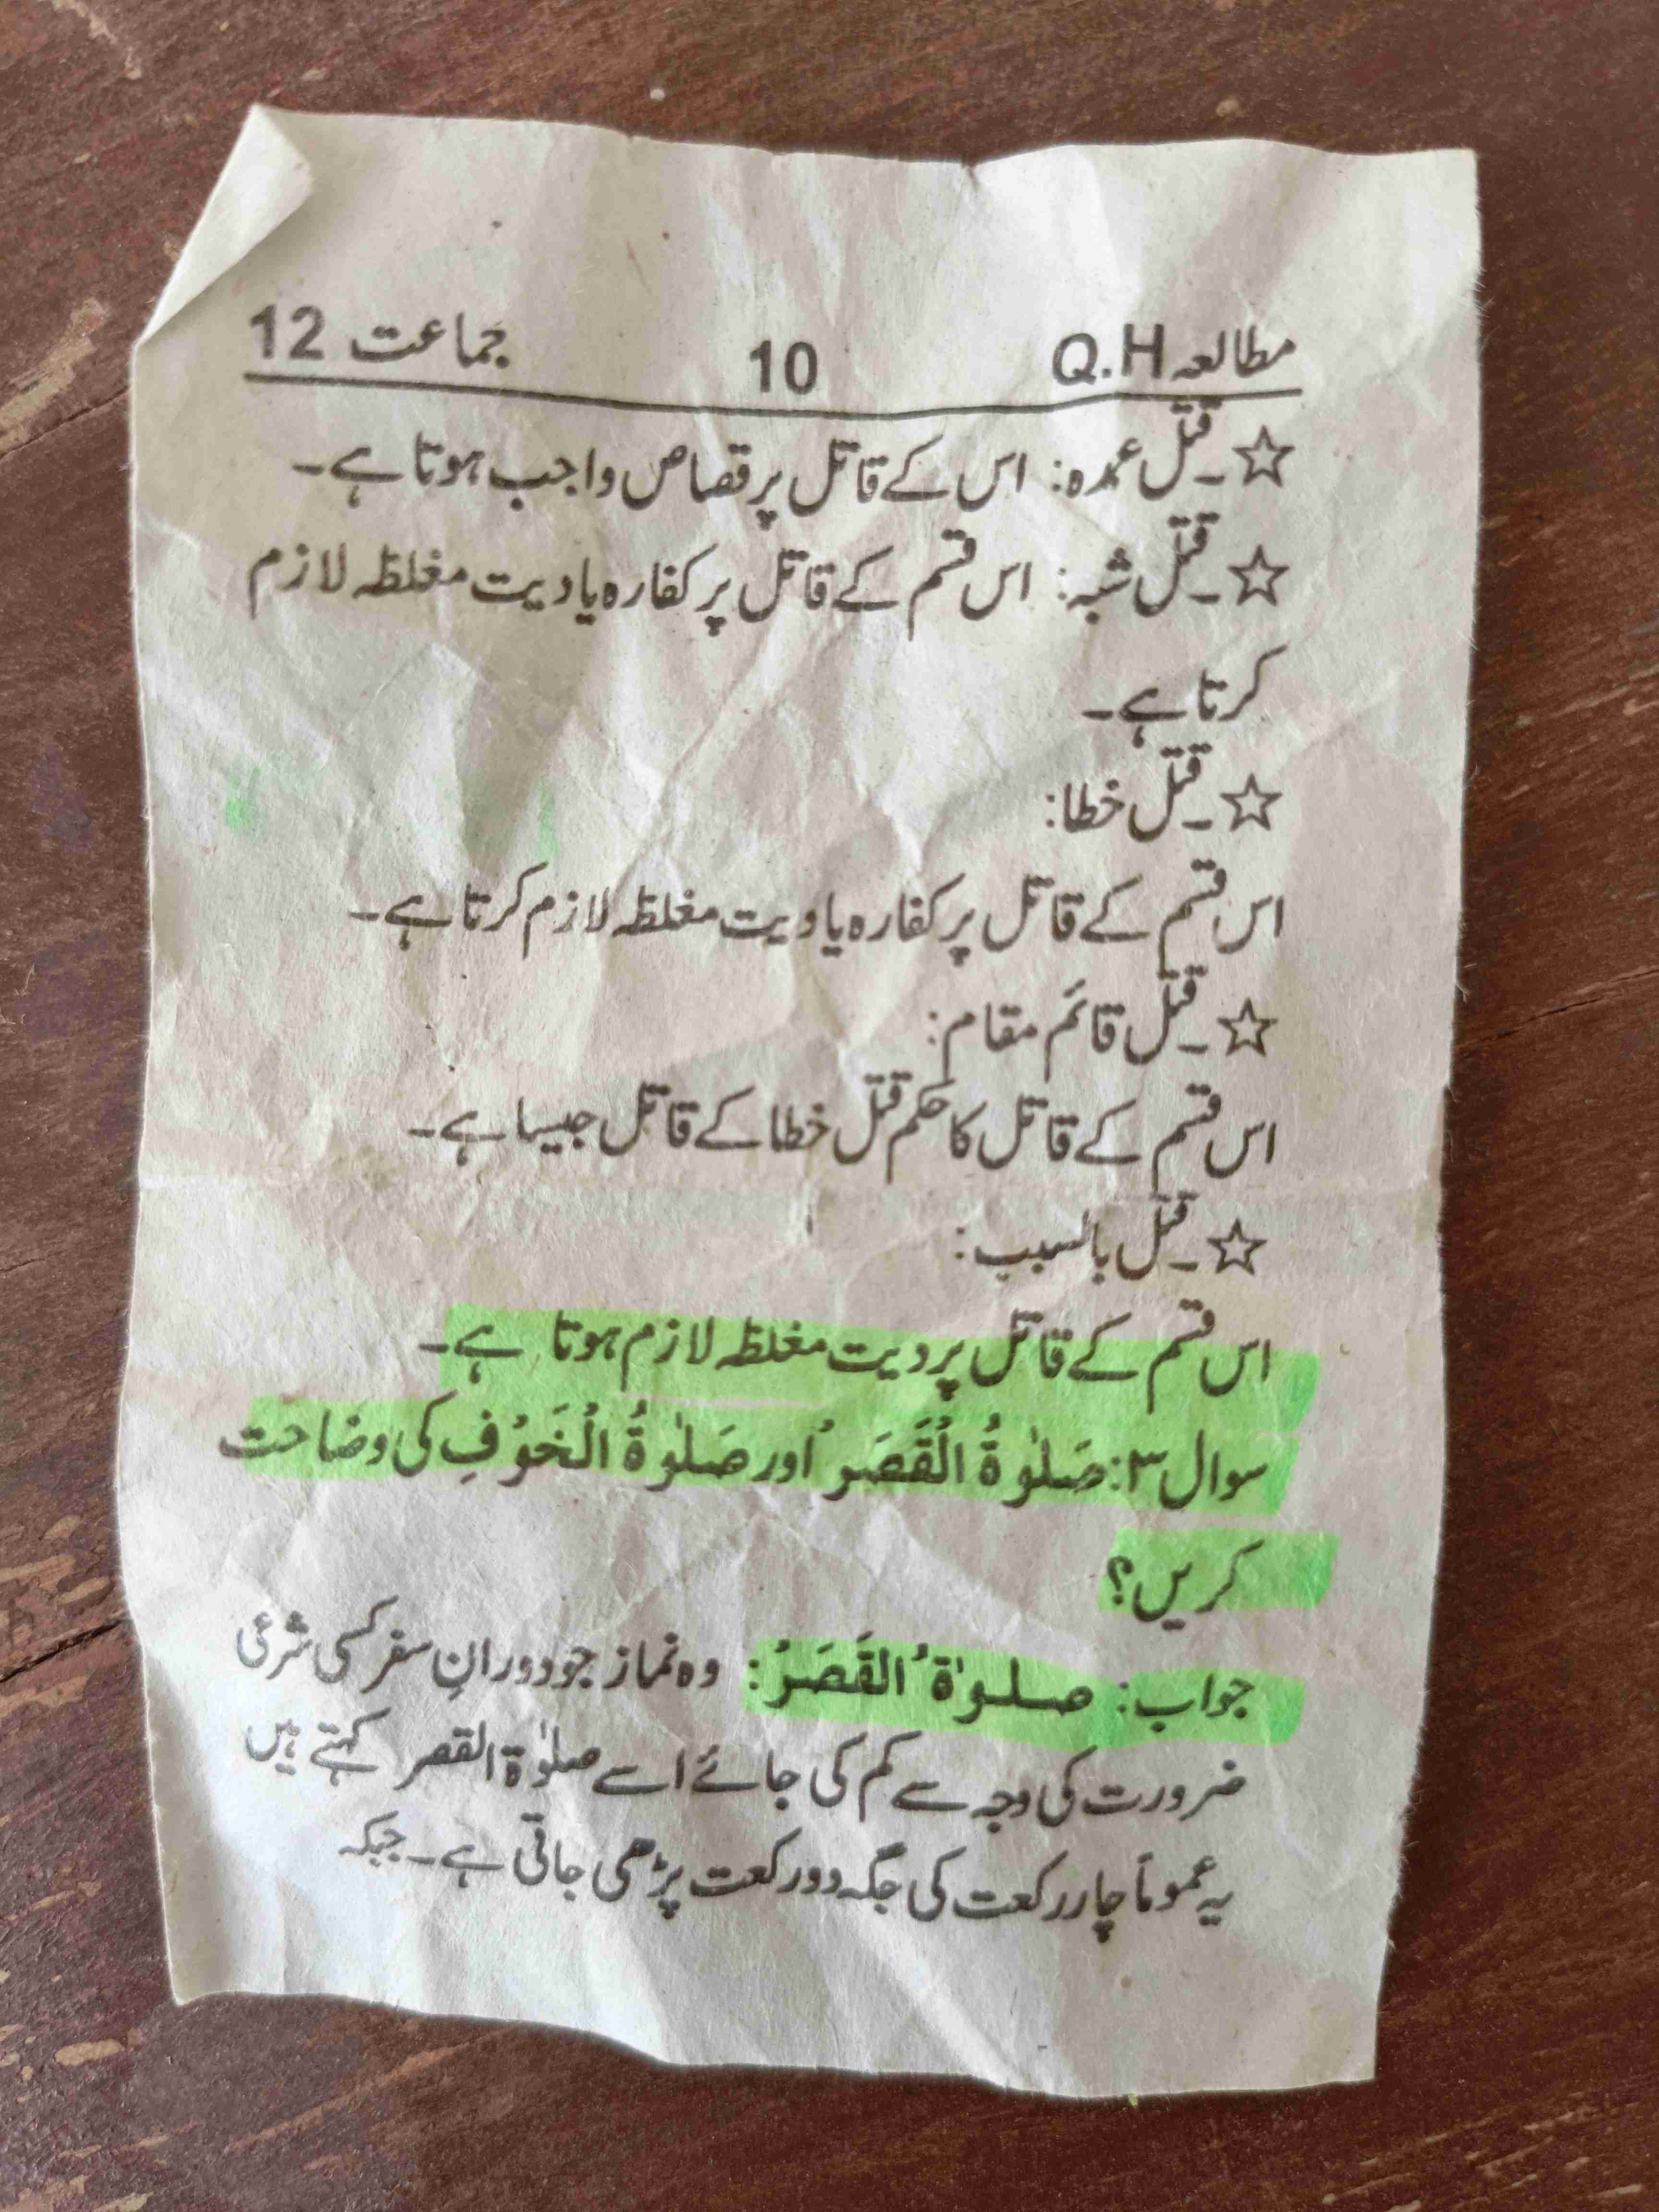 مطالعہ Q.H 10 جماعت 12
☆۔قتل عمدہ: اس کے قاتل پر قصاص واجب ہوتا ہے۔
☆۔قتل شبہ: اس قسم کے قاتل پر کفارہ یا دیت مغلظہ لازم
کرتا ہے۔
☆۔قتل خطا:
اس قسم کے قاتل پر کفارہ یا دیت مغلظہ لازم کرتا ہے۔
☆۔قتل قائم مقام:
اس قسم کے قاتل کا حکم قتل خطا کے قاتل جیسا ہے۔
☆۔قتل بالسبب:
اس قسم کے قاتل پر دیت مغلظہ لازم ہوتا ہے۔
سوال ۳: صَلوٰةُ الْقَصَرُ اور صَلوٰةُ الْخَوْفِ کی وضاحت
کریں؟
جواب: صلوٰةُ القَصَرُ: وہ نماز جو دورانِ سفر کسی شرعی
ضرورت کی وجہ سے کم کی جائے اسے صلوٰة القصر کہتے ہیں
یہ عموماً چار رکعت کی جگہ دو رکعت پڑھی جاتی ہے۔ جبکہ